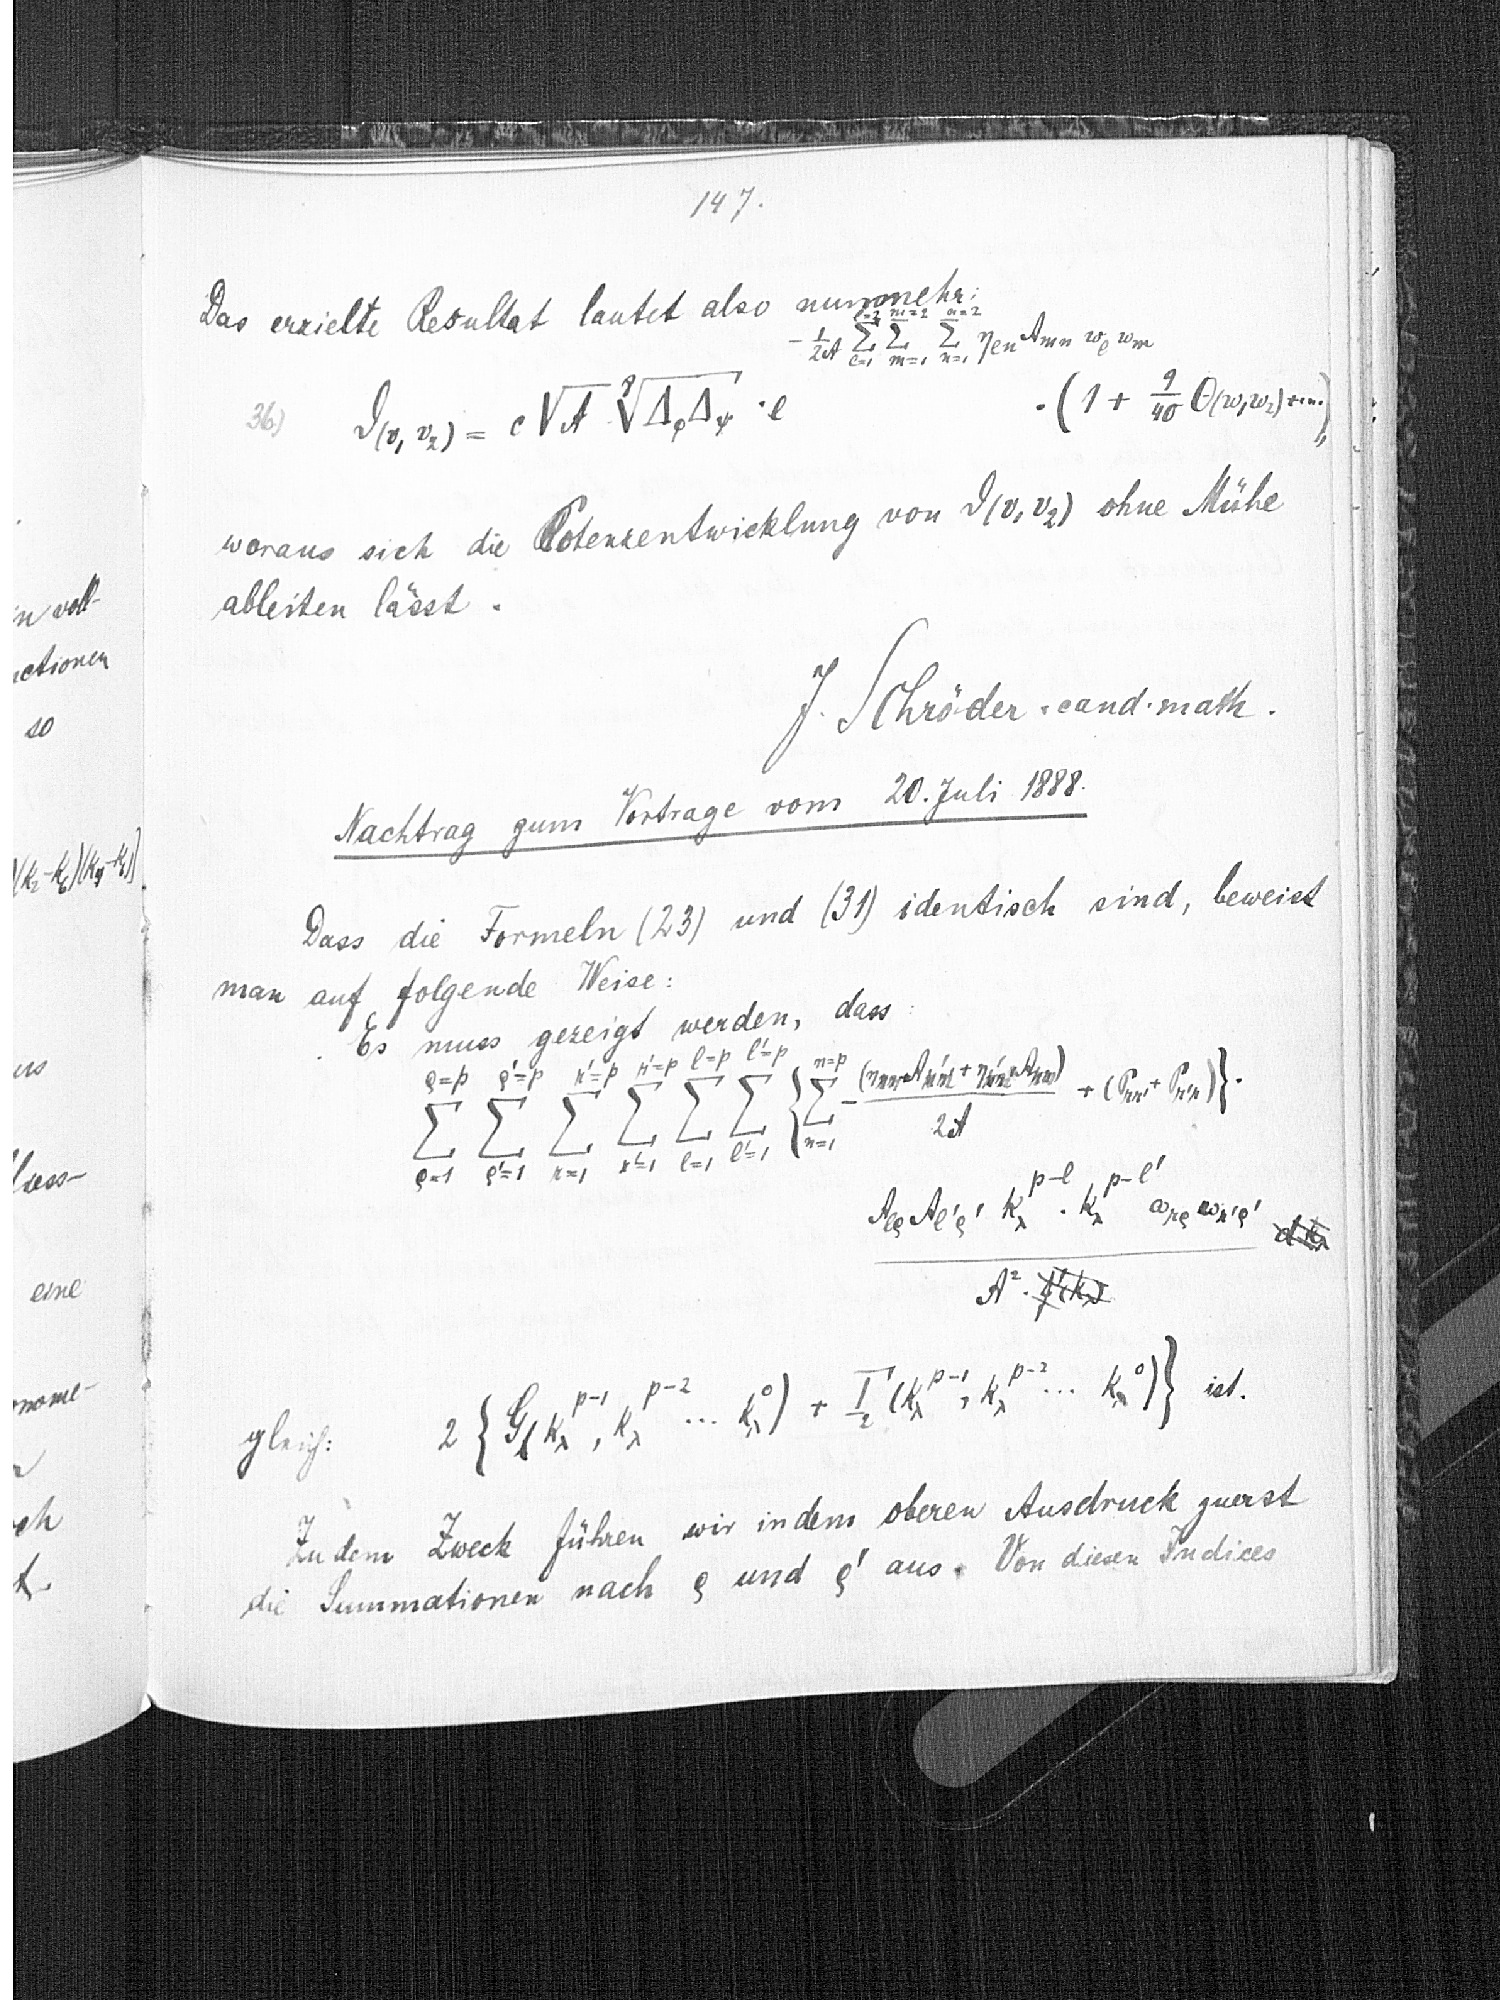 in voll-
nctionen
so
)(k₂-k₆)(k₄-k₆)]
us
eine
147.
Das erzielte Resultat lautet also nunmehr:
36) ϑ(v₁ v₂) = c √A ∜Δφ Δψ · e^{-1/2A Σ_{l=1}^{l=2} Σ_{m=1}^{m=2} Σ_{n=1}^{n=2} η_{ln} A_{mn} w_l w_m} · (1 + 9/40 Θ(w₁w₂)+...),
woraus sich die Potenzentwicklung von ϑ(v₁ v₂) ohne Mühe
ableiten lässt.
J. Schröder. cand. math.
Nachtrag zum Vortrage vom 20. Juli 1888.
Dass die Formeln (23) und (31) identisch sind, beweist
man auf folgende Weise:
Es muss gezeigt werden, dass:
Σ_{ρ=1}^{ρ=p} Σ_{ρ'=1}^{ρ'=p} Σ_{κ=1}^{κ=p} Σ_{κ'=1}^{κ'=p} Σ_{l=1}^{l=p} Σ_{l'=1}^{l'=p} { Σ_{n=1}^{n=p} - (η_{κn} A_{κ'n} + η_{κ'n} A_{κn}) / 2A + (P_{κκ'} + P_{κ'κ}) } ·
A_{lρ} A_{l'ρ'} k_λ^{p-l} · k_λ^{p-l'} ω_{κρ} ω_{κ'ρ'} / A² ·
gleich: 2 { G(k_λ^{p-1}, k_λ^{p-2} ... k_λ^0) + Γ/2 (k_λ^{p-1}, k_λ^{p-2} ... k_λ^0) } ist.
Zu dem Zweck führen wir in dem oberen Ausdruck zuerst
die Summationen nach ρ und ρ' aus. Von diesen Indices